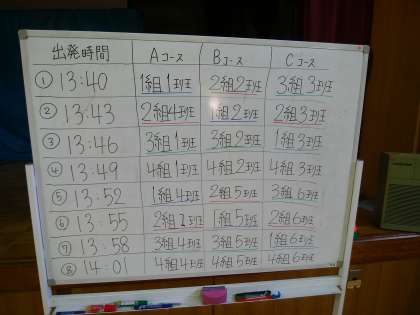 出発時間 Aコース Bコース Cコース
① 13:40 1組1班 2組2班 3組3班
② 13:43 2組4班 1組2班 2組3班
③ 13:46 3組1班 3組2班 1組3班
④ 13:49 4組1班 4組2班 4組3班
⑤ 13:52 1組4班 2組5班 3組6班
⑥ 13:55 2組1班 1組5班 2組6班
⑦ 13:58 3組4班 3組5班 1組6班
⑧ 14:01 4組4班 4組5班 4組6班